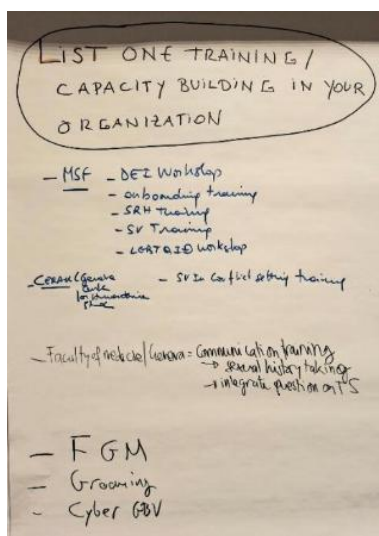 LIST ONE TRAINING/
CAPACITY BUILDING IN YOUR
ORGANIZATION
- MSF - DEI Workshop
- onboarding training
- SRH Training
- SV Training
- LGBTQI workshop
- CERAH (Geneva - SV in conflict setting training
Centre
for humanitarian
- Faculty of medicine/Geneva = Communication training
→ sexual history taking
→ integrate question on
- FGM
- Grooming
- Cyber GBV